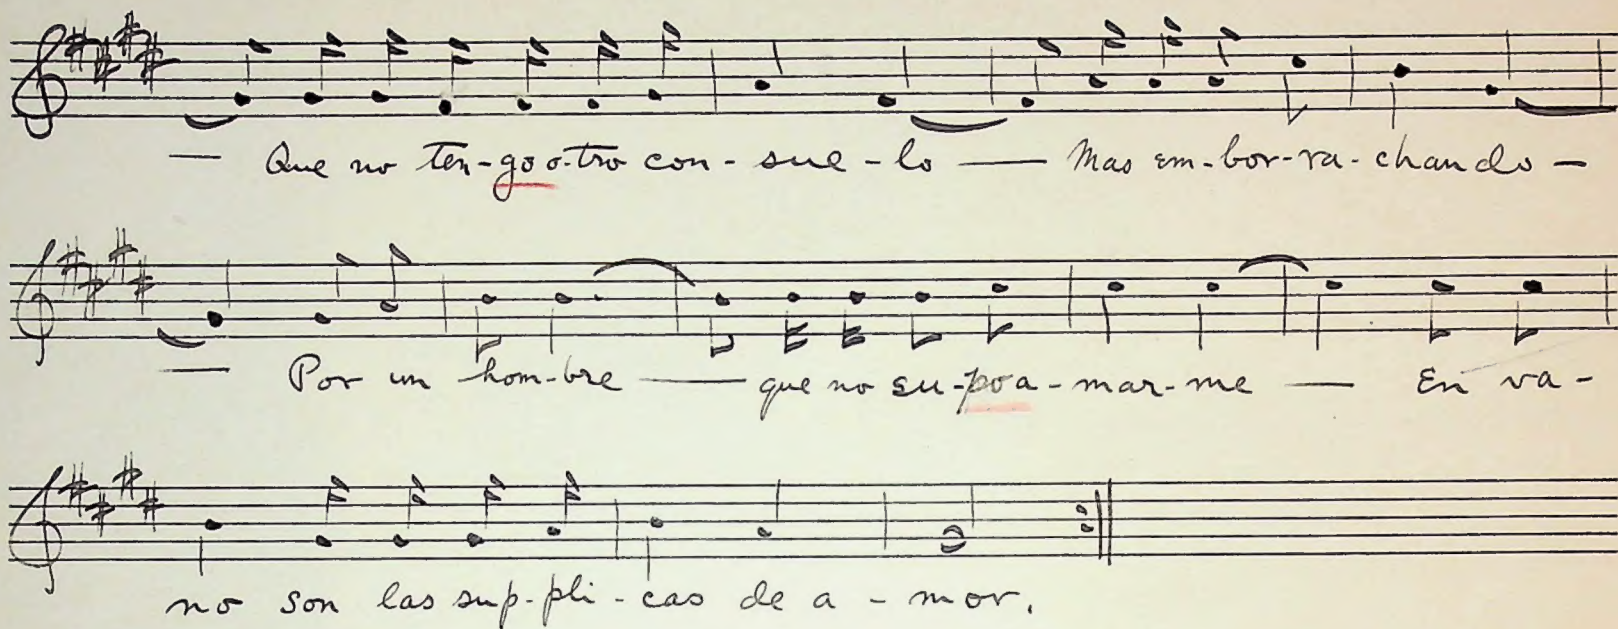 — Que no ten-go o-tro con-sue-lo — Mas em-bor-ra-chando-
— Por un hom-bre — que no su-poa-mar-me — En va-
no son las sup-pli-cas de a-mor.